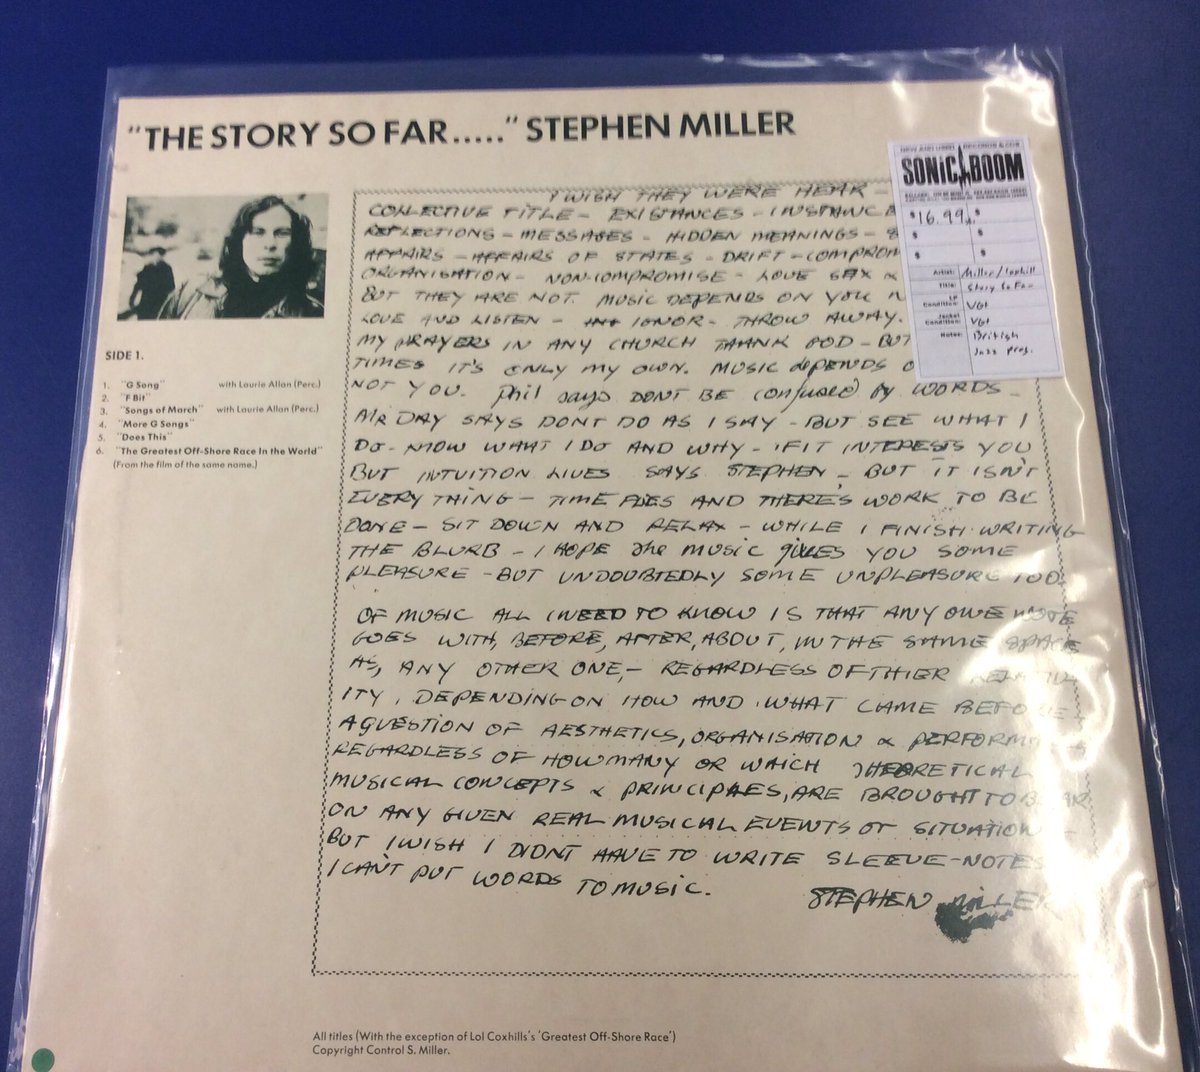 "THE STORY SO FAR....." STEPHEN MILLER
SONIC BOOM
$16.99
$
$
$
$
$
Artist: Miller/Coxhill
Title: Story So Far
LP Condition: VG+
Jacket Condition: VG+
Notes: British
Jazz prog.
SIDE 1.
1. "G Song" with Laurie Allan (Perc.)
2. "F Bit"
3. "Songs of March" with Laurie Allan (Perc.)
4. "More G Songs"
5. "Does This"
6. "The Greatest Off-Shore Race In the World"
(From the film of the same name.)
I WISH THEY WERE HEAR -
COLLECTIVE TITLE - EXISTANCES - INSTANCE
REFLECTIONS - MESSAGES - HIDDEN MEANINGS -
AFFAIRS - AFFAIRS OF STATES - DRIFT - COMPROM
ORGANISATION - NON-COMPROMISE - LOVE SEX &
BUT THEY ARE NOT. MUSIC DEPENDS ON YOU
LOVE AND LISTEN - IGNOR - THROW AWAY.
MY PRAYERS IN ANY CHURCH THANK POD - BUT
TIMES IT'S ONLY MY OWN. MUSIC dEPENDS
NOT YOU. Phil says DONT BE confused by WORDS -
MR DAY SAYS DONT DO AS I SAY - BUT SEE WHAT I
DO - KNOW WHAT I DO AND WHY - IF IT INTERESTS YOU
BUT INTUITION LIVES SAYS STEPHEN - BUT IT ISN'T
EVERYTHING - TIME FLIES AND THERE'S WORK TO BE
DONE - SIT DOWN AND RELAX - WHILE I FINISH WRITING
THE BLURB - I HOPE the MUSIC gives YOU SOME
PLEASURE - BUT UNDOUBTEDLY SOME UNPLEASURE TOO.
OF MUSIC ALL I NEED TO KNOW IS THAT ANY ONE NOTE
GOES WITH, BEFORE, AFTER, ABOUT, IN THE SAME SPACE
AS, ANY OTHER ONE, - REGARDLESS OF THIER
ITY, DEPENDING ON HOW AND WHAT CAME BEFORE
A QUESTION OF AESTHETICS, ORGANISATION & PERFORM
REGARDLESS OF HOW MANY OR WHICH THEORETICAL
MUSICAL CONCEPTS & PRINCIPLES, ARE BROUGHT TO BEAR
ON ANY GIVEN REAL MUSICAL EVENTS OT SITUATION
BUT I WISH I DIDNT HAVE TO WRITE SLEEVE-NOTES
I CAN'T PUT WORDS TO MUSIC.
STEPHEN MILLER
All titles (With the exception of Lol Coxhills's 'Greatest Off-Shore Race')
Copyright Control S. Miller.